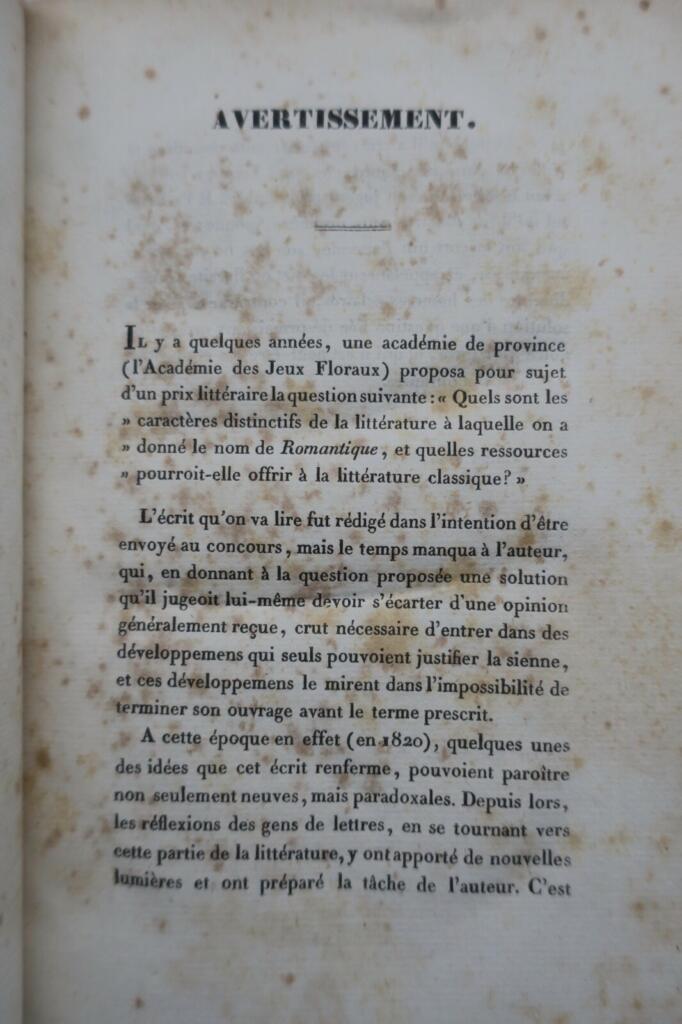 AVERTISSEMENT.
IL y a quelques années, une académie de province
(l'Académie des Jeux Floraux) proposa pour sujet
d'un prix littéraire la question suivante : « Quels sont les
» caractères distinctifs de la littérature à laquelle on a
» donné le nom de Romantique, et quelles ressources
» pourroit-elle offrir à la littérature classique? »
L'écrit qu'on va lire fut rédigé dans l'intention d'être
envoyé au concours, mais le temps manqua à l'auteur,
qui, en donnant à la question proposée une solution
qu'il jugeoit lui-même devoir s'écarter d'une opinion
généralement reçue, crut nécessaire d'entrer dans des
développemens qui seuls pouvoient justifier la sienne,
et ces développemens le mirent dans l'impossibilité de
terminer son ouvrage avant le terme prescrit.
A cette époque en effet (en 1820), quelques unes
des idées que cet écrit renferme, pouvoient paroître
non seulement neuves, mais paradoxales. Depuis lors,
les réflexions des gens de lettres, en se tournant vers
cette partie de la littérature, y ont apporté de nouvelles
lumières et ont préparé la tâche de l'auteur. C'est